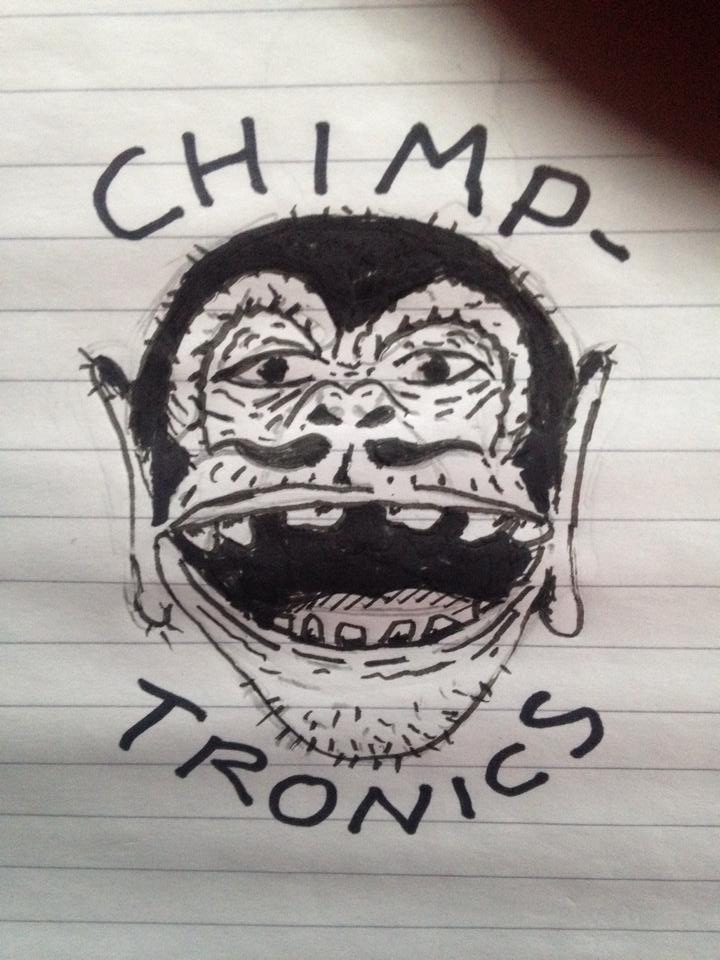 CHIMP-
TRONICS